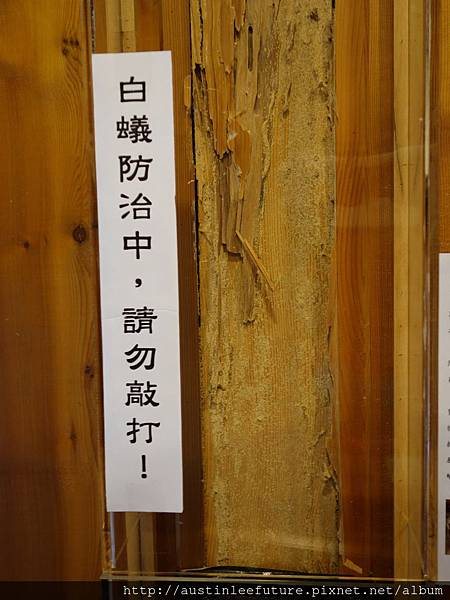 白蟻防治中，請勿敲打！
http://austinleefuture.pixnet.net/album